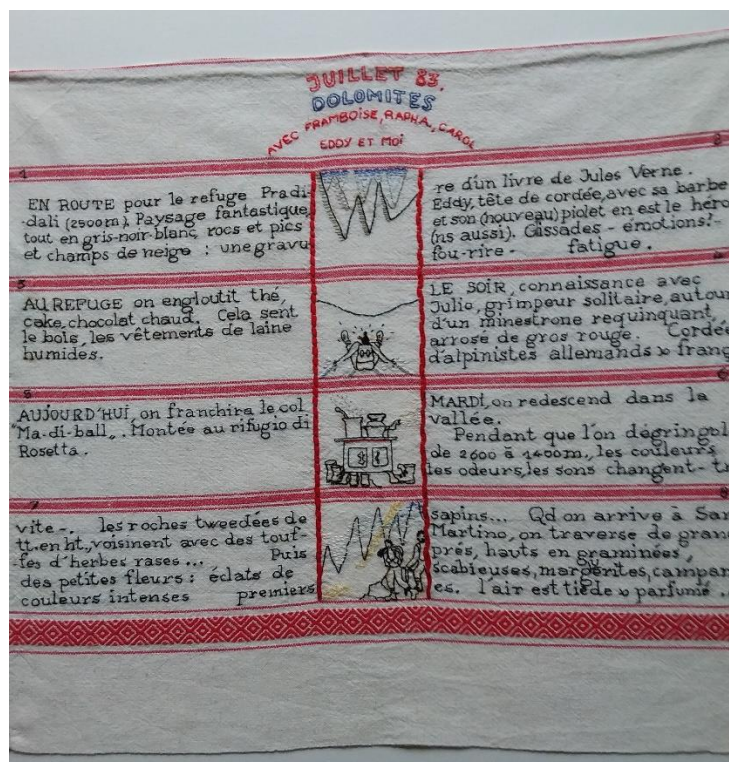 JUILLET 83.
DOLOMITES
AVEC FRAMBOISE, RAPHA., CAROL
EDDY ET MOI
1
EN ROUTE pour le refuge Pradi-
-dali (2500m). Paysage fantastique,
tout en gris-noir-blanc, rocs et pics
et champs de neige : une gravu
2
re d'un livre de Jules Verne.
Eddy, tête de cordée, avec sa barbe
et son (nouveau) piolet en est le héro
(ns aussi). Glissades - émotions!-
fou-rire. fatigue.
3
AU REFUGE on engloutit thé,
cake, chocolat chaud. Cela sent
le bois, les vêtements de laine
humides.
4
LE SOIR, connaissance avec
Julio, grimpeur solitaire, autour
d'un minestrone requinquant,
arrosé de gros rouge. Cordée
d'alpinistes allemands » franç
5
AUJOURD'HUI, on franchira le col
"Ma-di-ball„. Montée au rifugio di
Rosetta.
6
MARDI, on redescend dans la
vallée.
Pendant que l'on dégringol
de 2600 à 1400m., les couleurs
les odeurs, les sons changent - t
7
vite -. les roches tweedées de
tt. en ht., voisinent avec des touf-
-fes d'herbes rases ... Puis
des petites fleurs : éclats de
couleurs intenses premiers
8
sapins... Qd on arrive à San
Martino, on traverse de gran
prés, hauts en graminées,
scabieuses, margurites, campan
es. l'air est tiède » parfumé ..